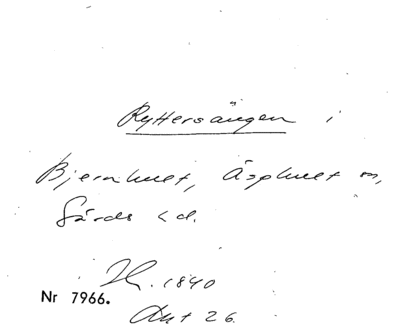 Ryttersängen i
Bjernhult, Äsphult sn,
Gärds hd.
H. 1840
Nr 7966.
Akt 26.